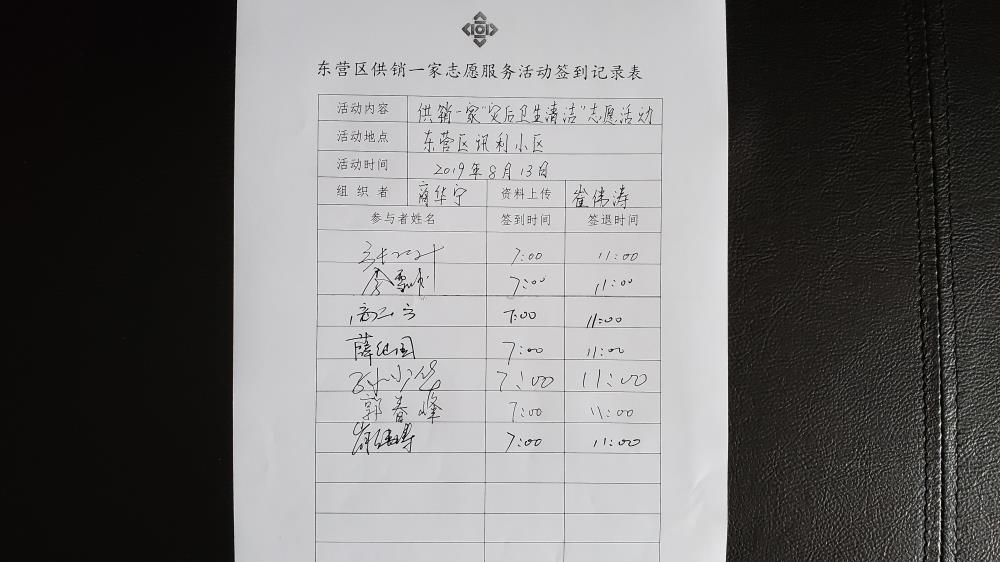 东营区供销一家志愿服务活动签到记录表
活动内容 供销一家"灾后卫生清洁"志愿活动
活动地点 东营区讯利小区
活动时间 2019年8月13日
组织者 商华宁 资料上传 崔伟涛
参与者姓名 签到时间 签退时间
7:00 11:00
7:00 11:00
7:00 11:00
薛纪国 7:00 11:00
7:00 11:00
郭春峰 7:00 11:00
崔伟涛 7:00 11:00